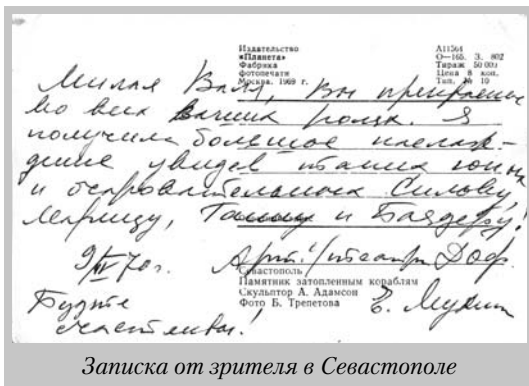 Издательство
«Планета»
Фабрика
фотопечати
Москва. 1969 г.
А11564
О—165. З. 802
Тираж 50 000
Цена 8 коп.
Тип. № 10
Милая Валя, Вы прекрасны
во всех Ваших ролях. Я
получила большое наслаж-
дение увидев таких юных
и очаровательных Сильву,
Марицу, и Баядеру!
70 г. Арт. театра
Севастополь
Памятник затопленным кораблям
Скульптор А. Адамсон
Фото Б. Трепетова
Будьте
счастливы!
Записка от зрителя в Севастополе